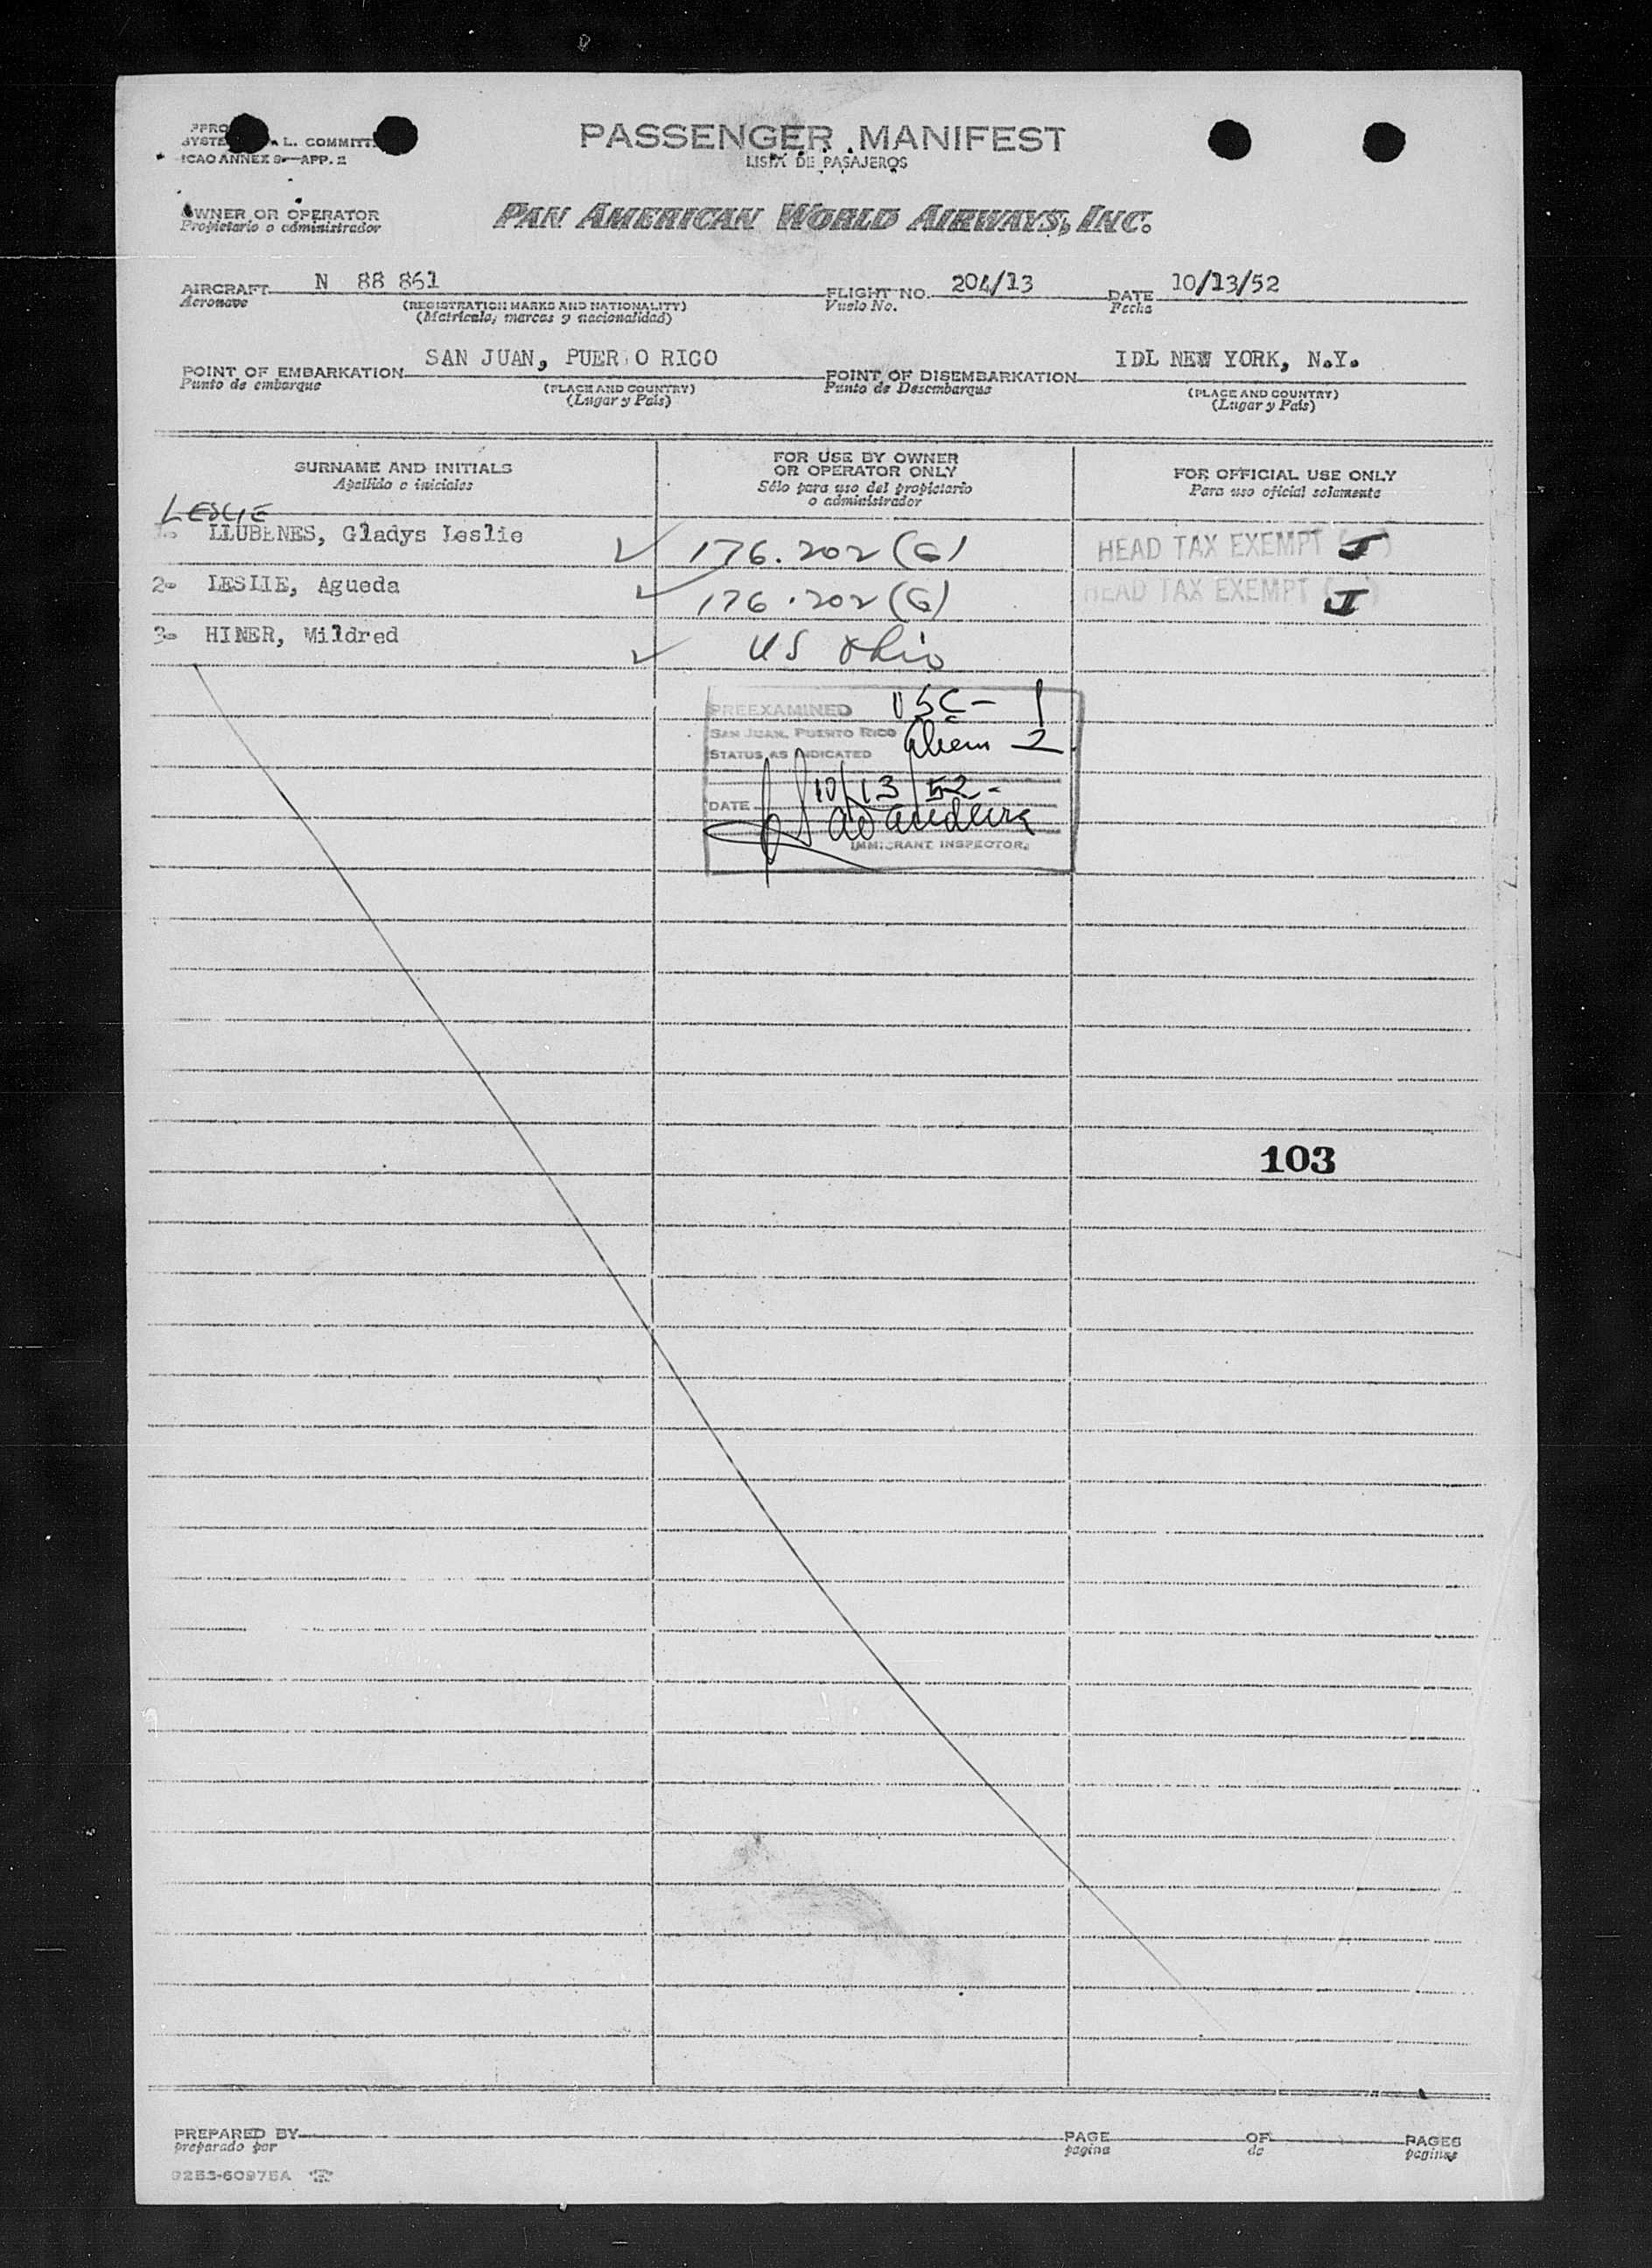 L. COMMITT
ICAO ANNEX 9—APP. 2
PASSENGER MANIFEST
LISTA DE PASAJEROS
OWNER OR OPERATOR
Propietario o administrador
PAN AMERICAN WORLD AIRWAYS, INC.
AIRCRAFT N 88 861
Aeronave
(REGISTRATION MARKS AND NATIONALITY)
(Matrícula, marcas y nacionalidad)
FLIGHT NO. 204/13
Vuelo No.
DATE 10/13/52
Fecha
POINT OF EMBARKATION SAN JUAN, PUER O RICO
Punto de embarque
(PLACE AND COUNTRY)
(Lugar y País)
POINT OF DISEMBARKATION IDL NEW YORK, N.Y.
Punto de Desembarque
(PLACE AND COUNTRY)
(Lugar y País)
SURNAME AND INITIALS
Apellido e iniciales
FOR USE BY OWNER
OR OPERATOR ONLY
Sólo para uso del propietario
o administrador
FOR OFFICIAL USE ONLY
Para uso oficial solamente
LESLIE
1- LLUBENES, Gladys Leslie ✓ 176.202 (G) HEAD TAX EXEMPT (J)
2- LESLIE, Agueda ✓ 176.202 (G) HEAD TAX EXEMPT (J)
3- HINER, Mildred ✓ US Ohio
PREEXAMINED USC - 1
SAN JUAN, PUERTO RICO Alien 2
STATUS AS INDICATED
DATE 10/13/52-
IMMIGRANT INSPECTOR
103
PREPARED BY
preparado por
PAGE OF PAGES
página de páginas
9253-60975A